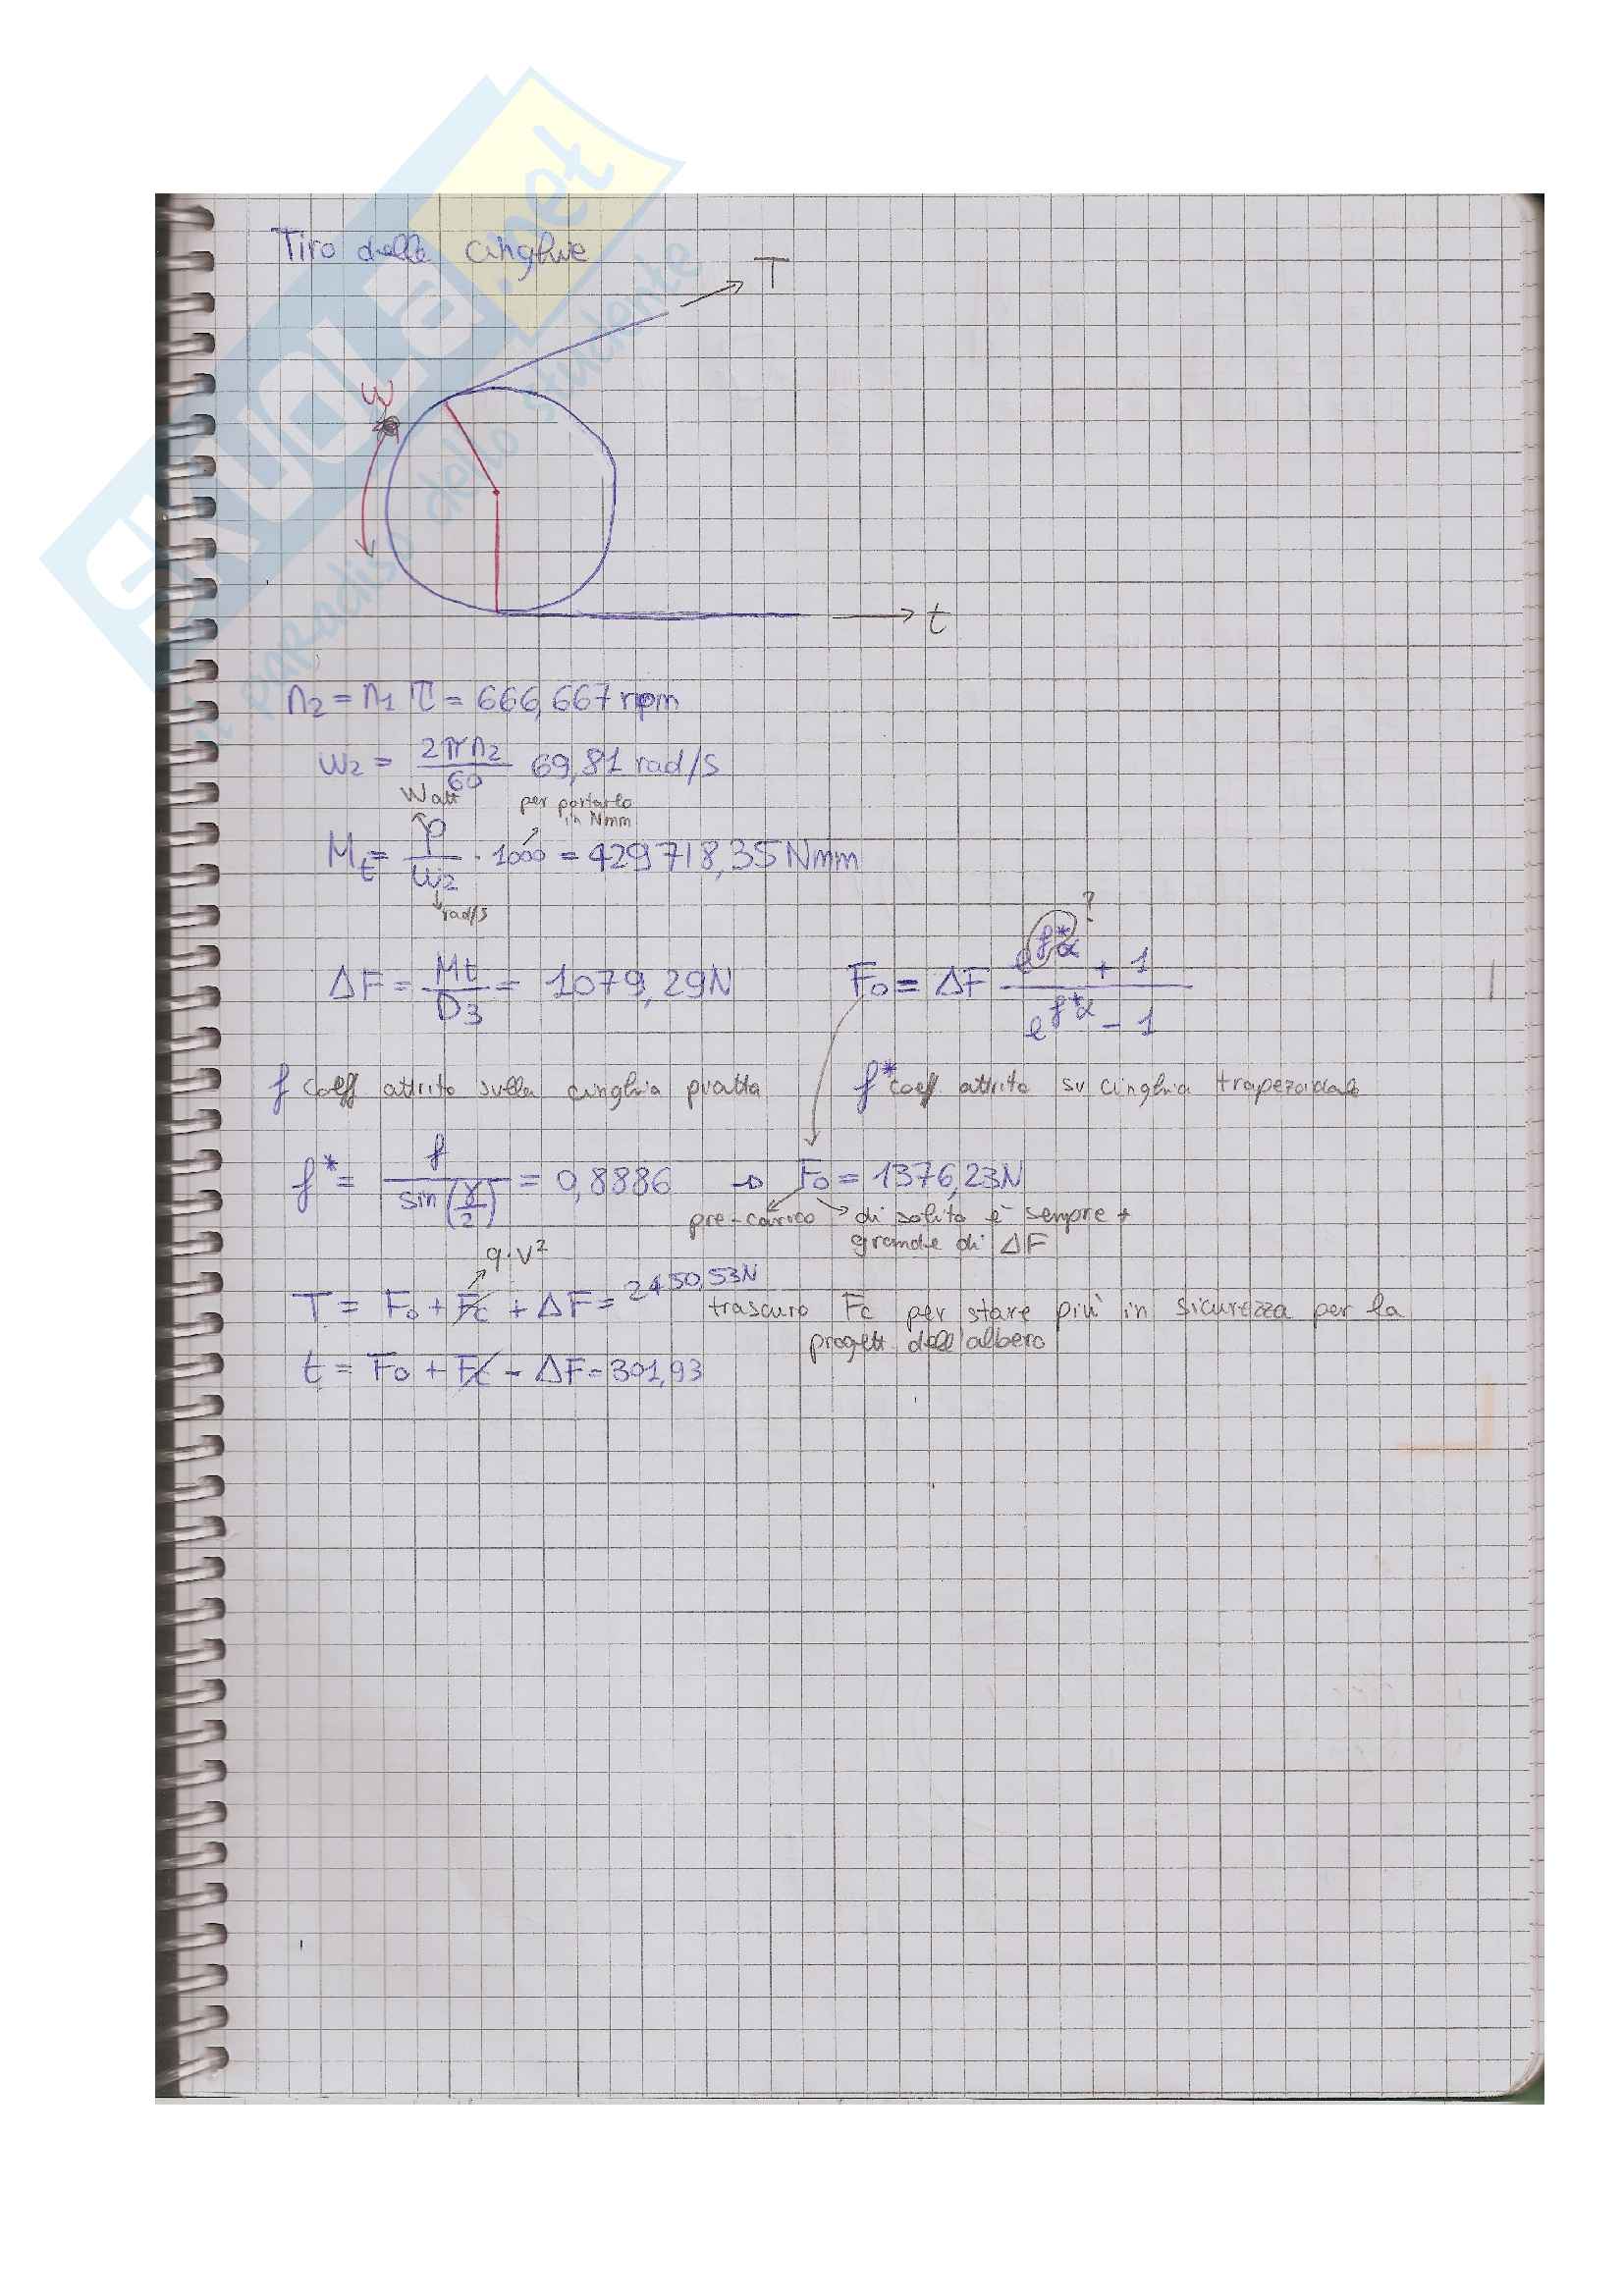 SKUOLA.net
il paradiso dello studente
Tiro delle cinghie
T
ω
t
n2 = n1 τ = 666,667 rpm
ω2 = 2πn2/60 69,81 rad/s
Watt
per portarlo in Nmm
Mt = P/ω2 · 1000 = 429718,35 Nmm
rad/s
ΔF = Mt/D3 = 1079,29N F0 = ΔF (e^(f*α) + 1)/(e^(f*α) - 1) ?
f coeff attrito sulla cinghia piatta f* coeff attrito su cinghia trapezoidale
f* = f/sin(γ/2) = 0,8886 → F0 = 1376,23N
pre-carico di solito è sempre +
grande di ΔF
q·v²
T = F0 + Fc + ΔF = 2450,53N trascuro Fc per stare più in sicurezza per la
progett dell'albero
t = F0 + Fc - ΔF = 301,93